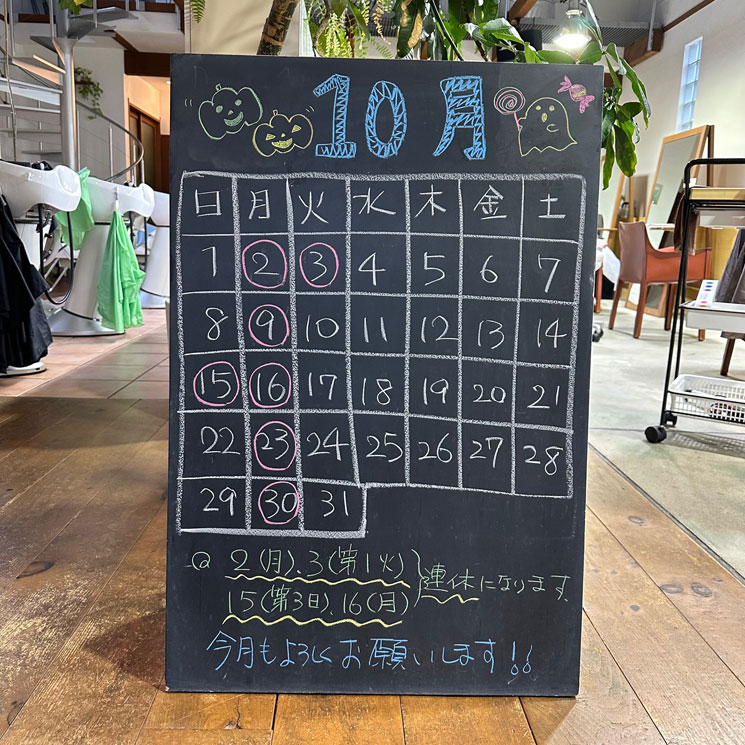 10月
日 月 火 水 木 金 土
1 2 3 4 5 6 7
8 9 10 11 12 13 14
15 16 17 18 19 20 21
22 23 24 25 26 27 28
29 30 31
2(月).3(第1火)
15(第3日).16(月)
連休になります.
今月もよろしくお願いします!!